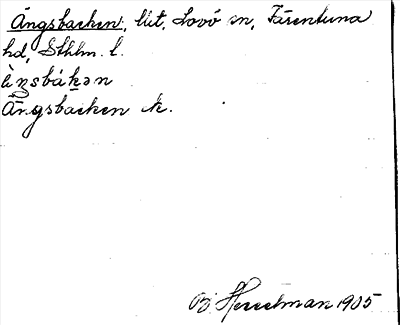 Ängsbacken, lht, Lovö sn, Färentuna
hd, Sthlm. l.
ä̀ŋsbákən
Ängsbacken k.
Bj Hesselman 1905